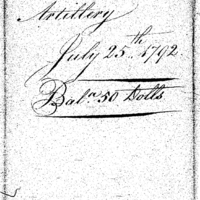 Artillery
July 25th 1792
Baln 50 Dolls